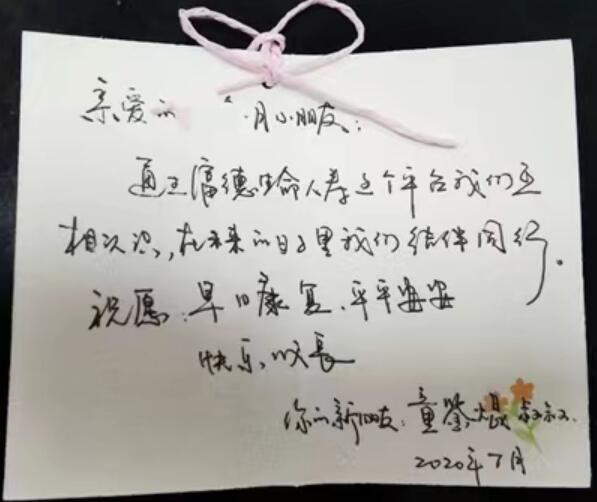 亲爱的 月小朋友：
通过富德生命人寿这个平台我们互
相认识，在未来的日子里我们结伴同行。
祝愿：早日康复、平平安安
快乐成长
你的新朋友：童 叔叔
2020年7月